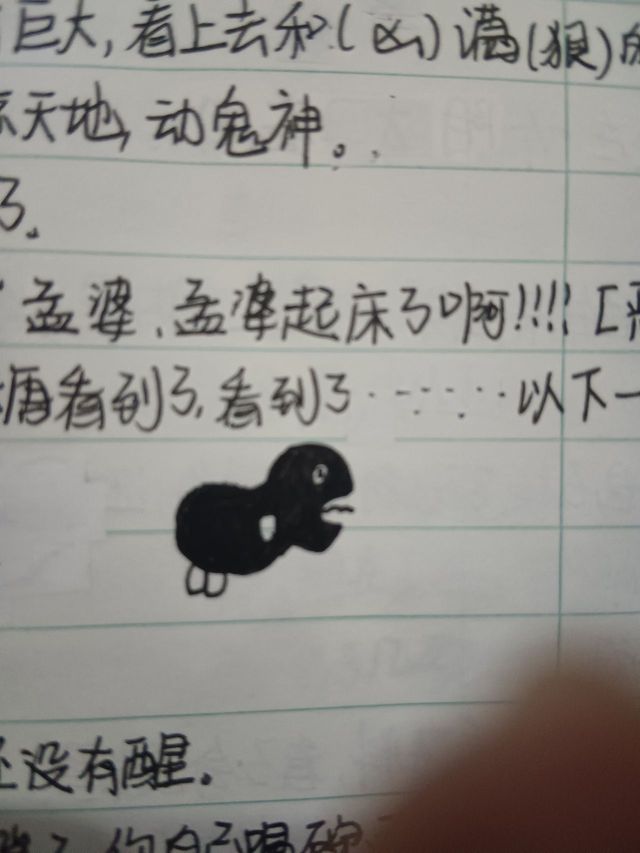 巨大,看上去和(凶)满(狠)的
天地,动鬼神。
了。
孟婆,孟婆起床了啊!!!! [
看到了,看到了········以下一
还没有醒。
你自己喝碗